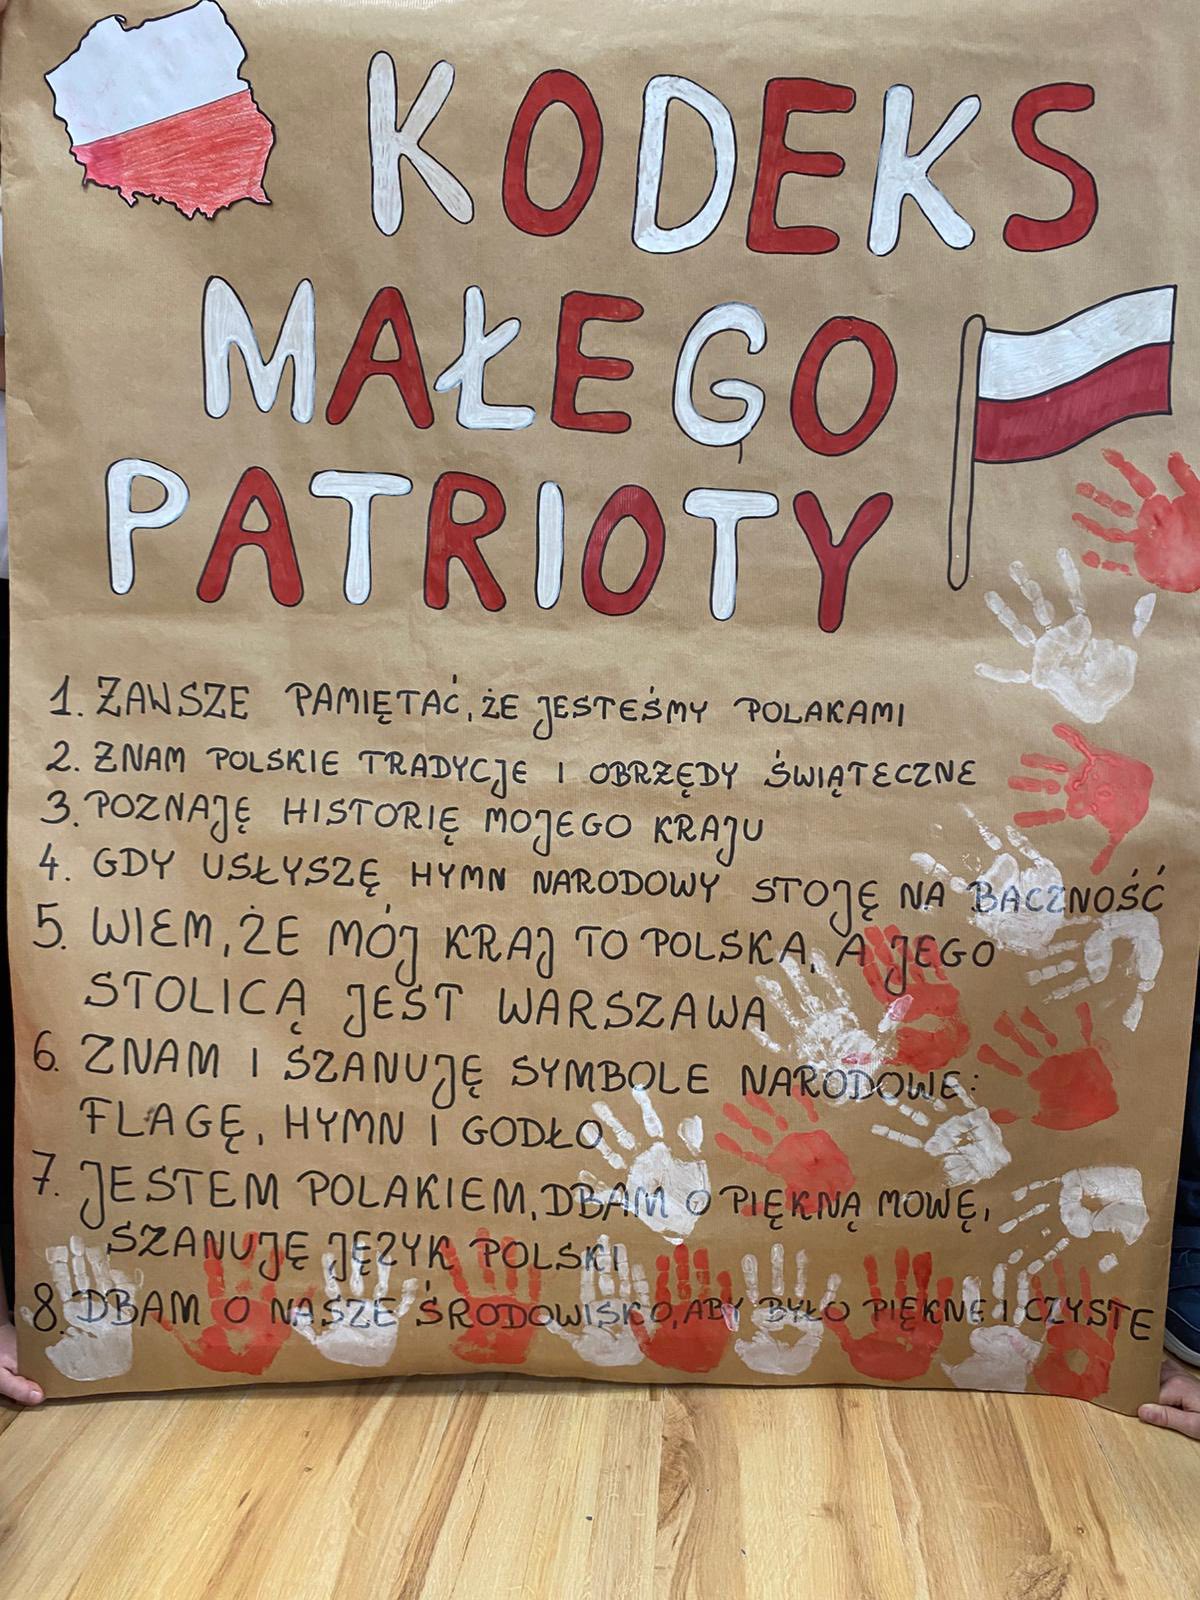 KODEKS
MAŁEGO
PATRIOTY
1. ZAWSZE PAMIĘTAĆ, ŻE JESTEŚMY POLAKAMI
2. ZNAM POLSKIE TRADYCJE I OBRZĘDY ŚWIĄTECZNE
3. POZNAJĘ HISTORIĘ MOJEGO KRAJU
4. GDY USŁYSZĘ HYMN NARODOWY STOJĘ NA BACZNOŚĆ
5. WIEM, ŻE MÓJ KRAJ TO POLSKA, A JEGO
STOLICĄ JEST WARSZAWA
6. ZNAM I SZANUJĘ SYMBOLE NARODOWE:
FLAGĘ, HYMN I GODŁO
7. JESTEM POLAKIEM, DBAM O PIĘKNĄ MOWĘ,
SZANUJĘ JĘZYK POLSKI
8. DBAM O NASZE ŚRODOWISKO, ABY BYŁO PIĘKNE I CZYSTE